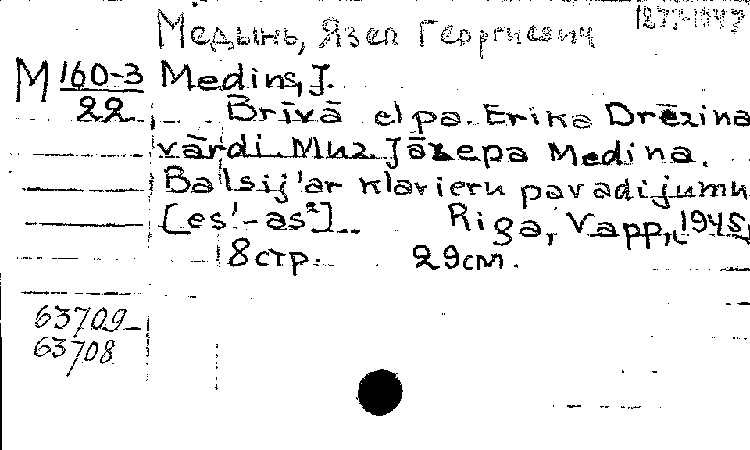 Медынь, Язеп Георгиевич 1877-1947
М 160-3 Medins, J.
22 Brīvā elpa. Erika Drēzina
vārdi. Muz. Jāzepa Medina.
Balsij ar klavieru pavadijumu
[es¹-as²]. Riga, Vapp, 1945,
8 стр. 29 см.
63709
63708